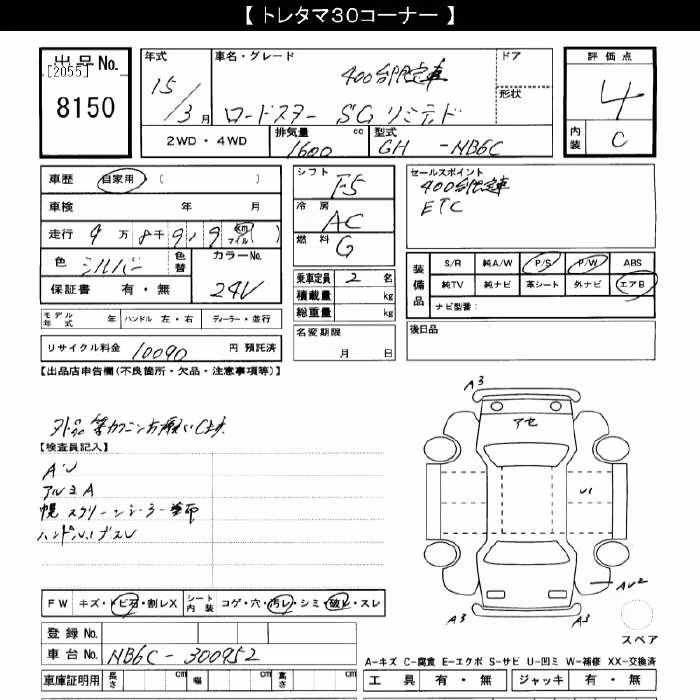 【 トレタマ30コーナー 】
出品No.
[2055]
8150
年式
15/3月
車名・グレード
400台限定車
ロードスター SGリミテッド
ドア
形状
2WD・4WD
排気量
1600 cc
型式
GH -NB6C
評価点
4
内装
C
車歴 自家用 ( )
車検 年 月
走行 9万8千919 km マイル ( )
色 シルバー
色替
カラーNo.
24V
保証書 有・無
シフト
F5
冷房
AC
燃料
G
セールスポイント
400台限定車
ETC
装備品
S/R 純A/W P/S P/W ABS
純TV 純ナビ 革シート 外ナビ エアB
ナビ型番:
乗車定員 2 名
積載量 kg
総重量 kg
モデル年式 年 ハンドル 左・右 ディーラー・並行
名変期限
月 日
後日品
リサイクル料金 10090 円 預託済
【出品店申告欄(不良箇所・欠品・注意事項等)】
外品等カクニンお願いします
【検査員記入】
AU
アルミA
幌スクリーン
ハンドル
A3
アセ
U1
AU2
A3
A3
スペア
FW キズ・トビ石・割レX シート内装 コゲ・穴・汚レ・シミ・破レ・スレ
登録No.
車台No. NB6C-300952
車庫証明用 長さ cm 幅 cm 高さ cm
A-キズ C-腐食 E-エクボ S-サビ U-凹ミ W-補修 XX-交換済
工具 有・無 ジャッキ 有・無